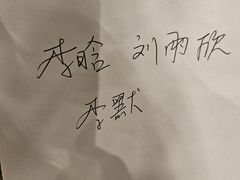 李晗 刘雨欣
李默